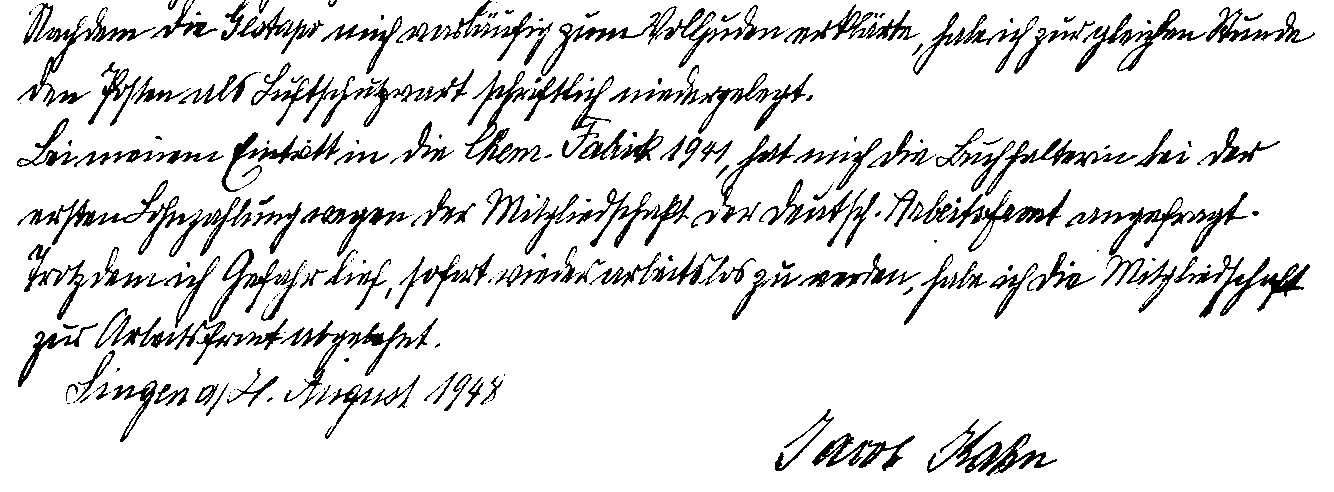 Nachdem die Gestapo mich vorläufig zum Volljuden erklärte, habe ich zur gleichen Stunde
den Posten als Luftschutzwart schriftlich niedergelegt.
Bei meinem Eintritt in die Chem. Fabrik 1941, hat mich die Buchhalterin bei der
ersten Lohnzahlung wegen der Mitgliedschaft der deutsch. Arbeitsfront angefragt.
Trotzdem ich Gefahr lief, sofort wieder arbeitslos zu werden, habe ich die Mitgliedschaft
zur Arbeitsfront abgelehnt.
Singen a/H. August 1948
Jacob Kahn